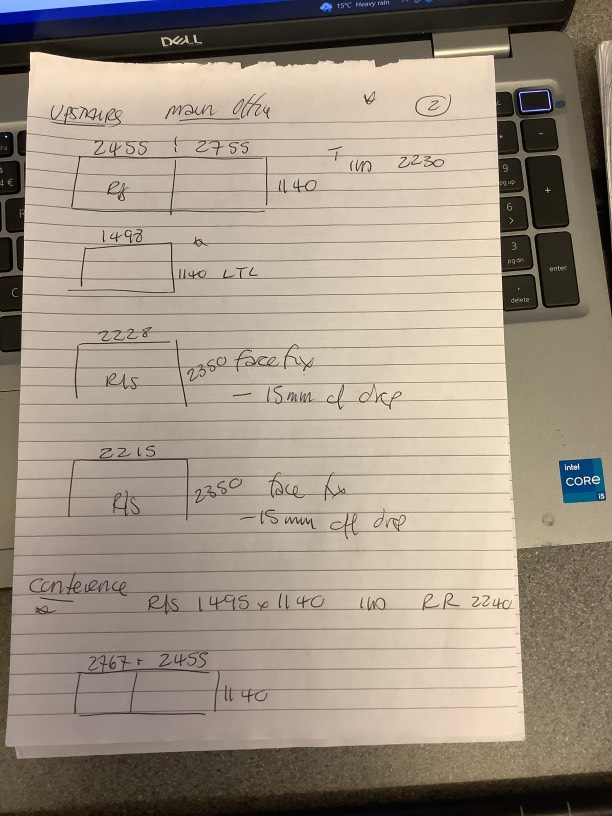 15°C Heavy rain
DELL
UPSTAIRS main Office ②
2455 2755 T 2230
R/S 1140
1498
1140 LTL
2228
R/S 2350 face fix
- 15mm off drop
2215
R/S 2350 face fix
- 15mm off drop
Conference
R/S 1495 x 1140 RR 2240
2767 + 2455
1140
9
pg up
+
6
3
pg dn
enter
delete
intel
CORE
i5